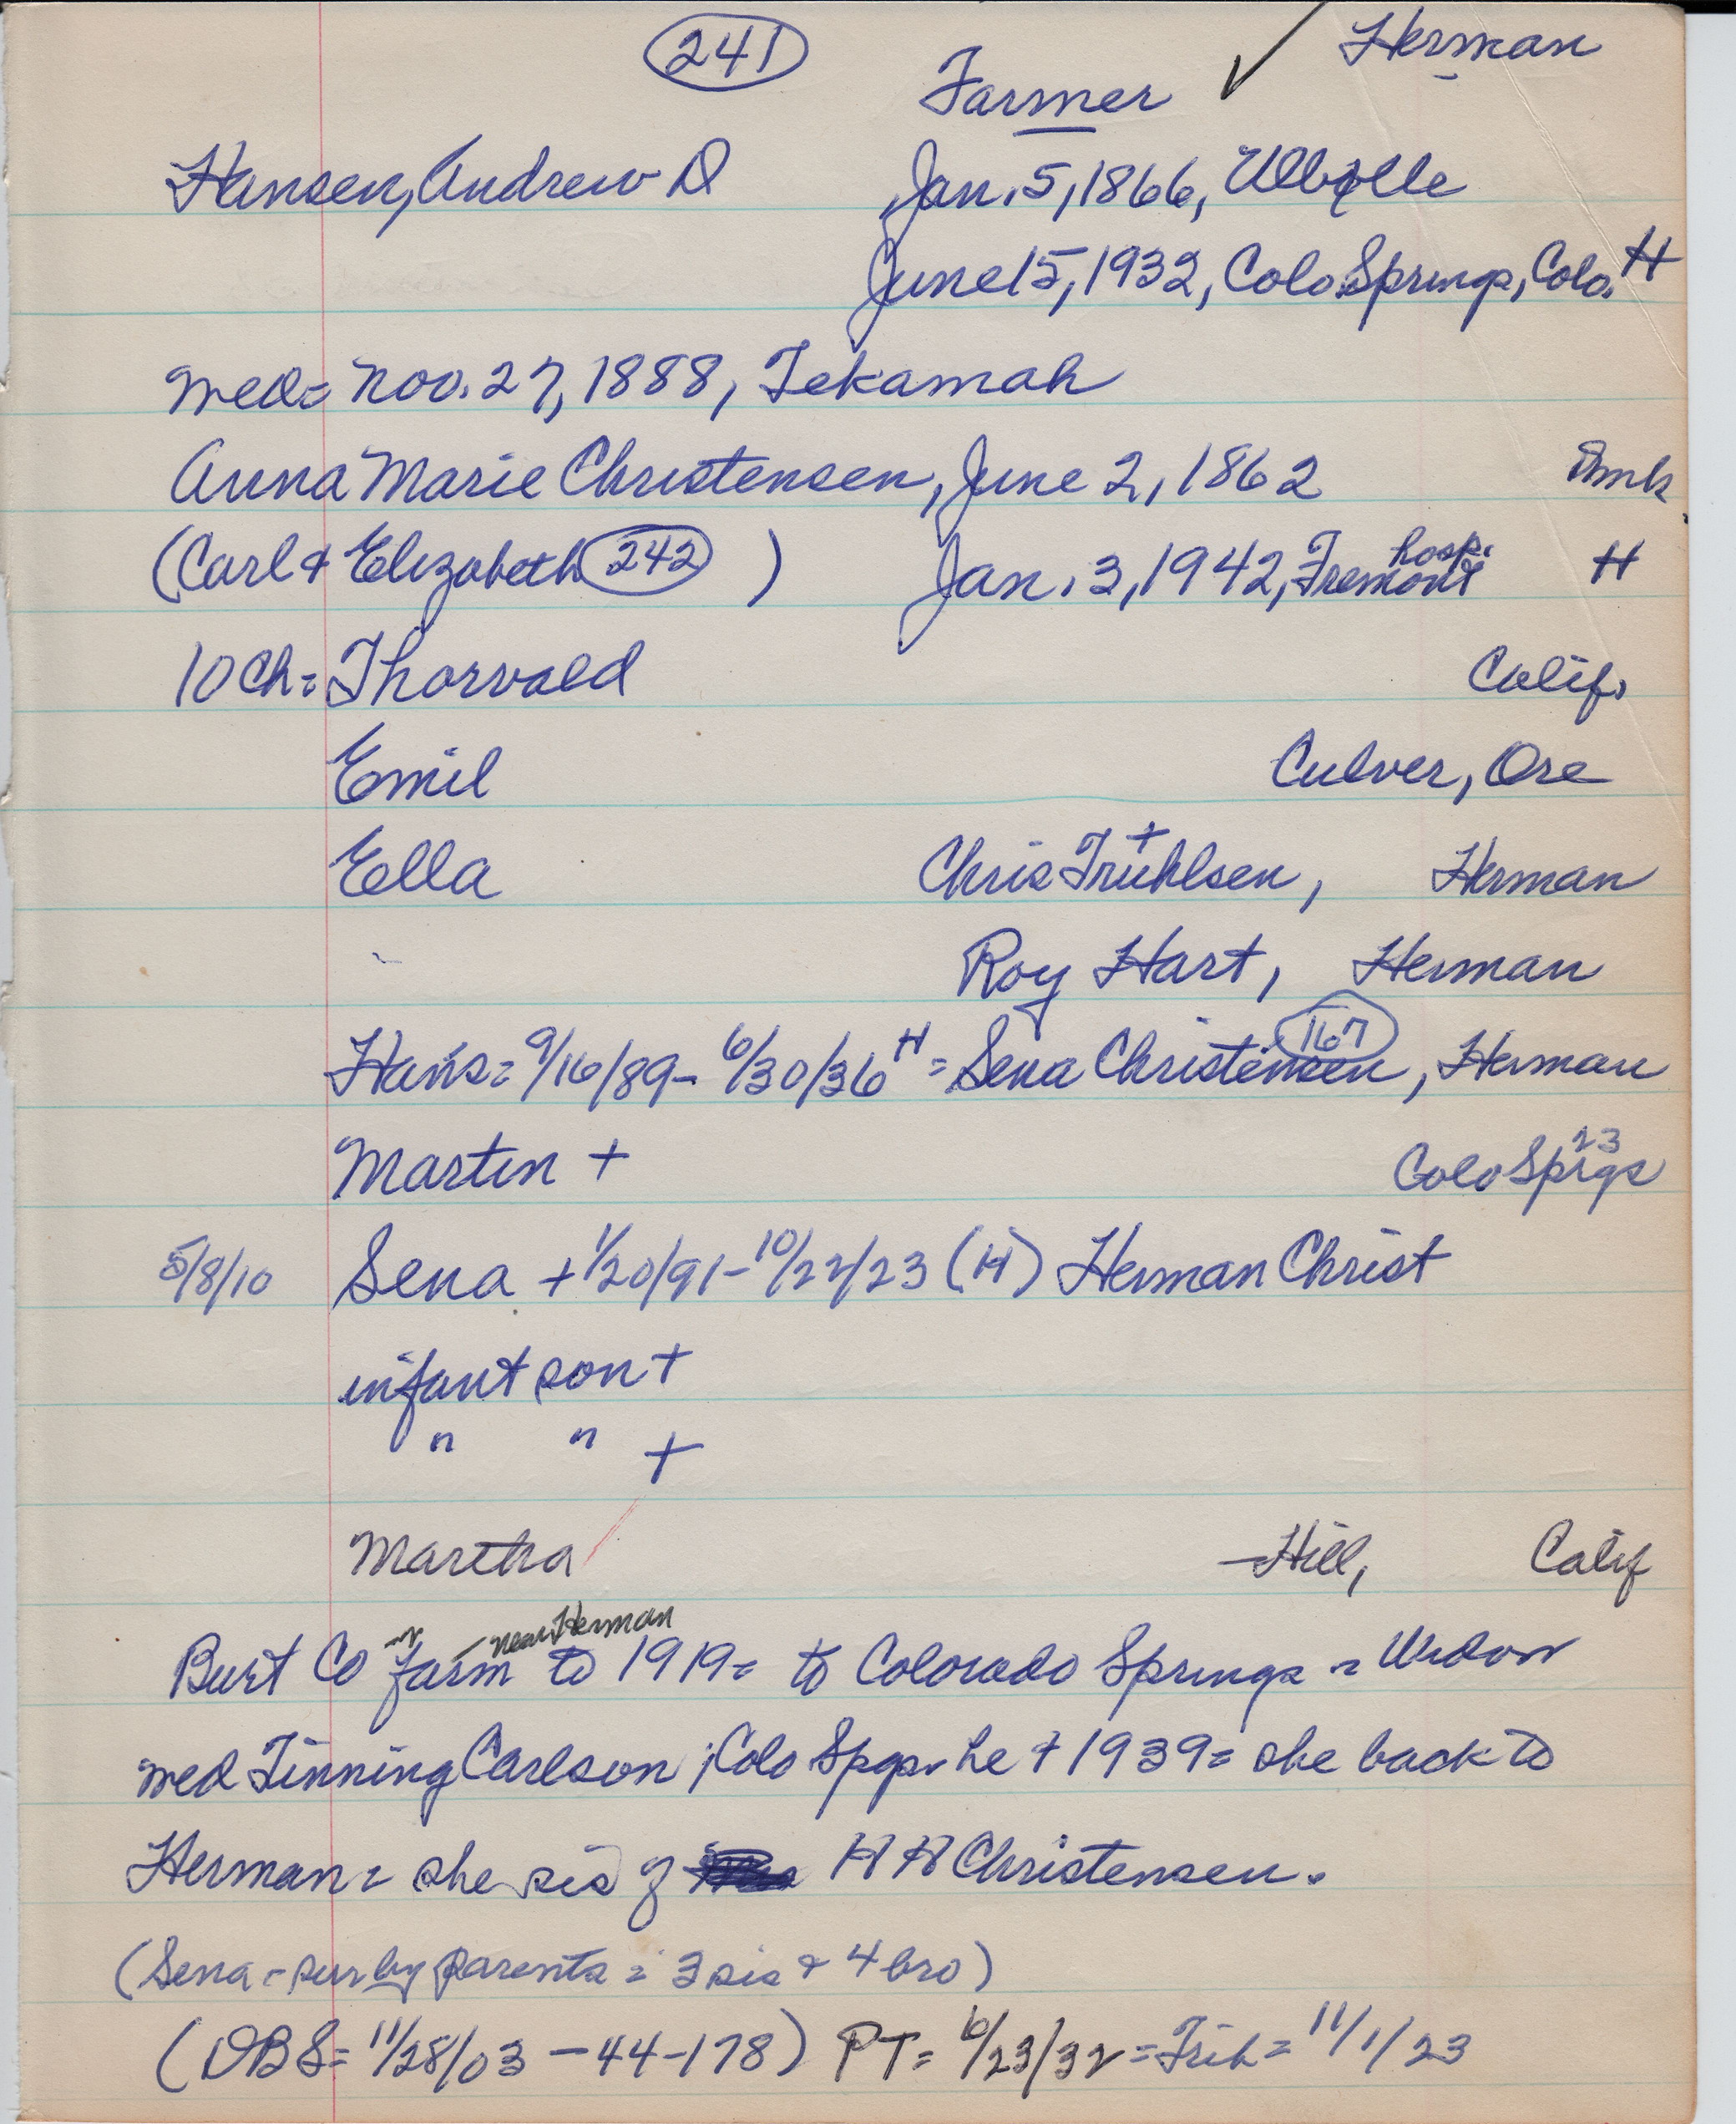 241
Herman
Farmer ✓
Hansen, Andrew D Jan. 5, 1866, Ulbølle
June 15, 1932, Colo Springs, Colo. H
Med= Nov. 27, 1888, Tekamah
Anna Marie Christensen, June 2, 1862 Dmk
(Carl & Elizabeth 242 ) Jan. 3, 1942, Fremont hosp. H
10 Ch= Thorvald Calif.
Emil Culver, Ore
Ella Chris Trühlsen +, Herman
Roy Hart, Herman
Hans= 9/16/89- 6/30/36 H = Sena Christensen 167, Herman
Martin + Colo Sprgs 23
5/8/10 Sena + 1/20/91-10/22/23 (H) Herman Christ
infant son +
" " +
Martha —Hill, Calif
Burt Co farm - near Herman to 1919= to Colorado Springs = Widow
med Tinning Carlson; Colo Spgs he + 1939= she back to
Herman= she sis of H H Christensen.
(Sena = sur by parents = 3 sis & 4 bro)
(DBS= 11/28/03 - 44-178) PT= 6/23/32 = Trih= 11/1/23